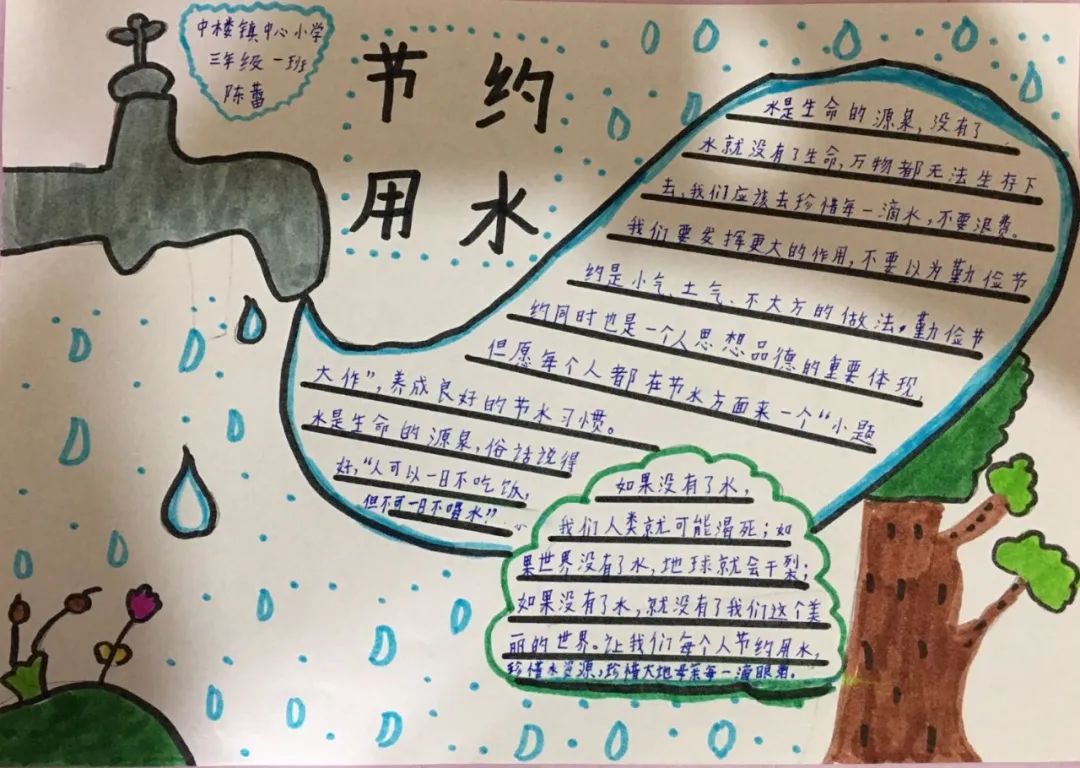 中楼镇中心小学
三年级一班
陈蕾
节约
用水
水是生命的源泉，没有了
水就没有了生命，万物都无法生存下
去，我们应该去珍惜每一滴水，不要浪费。
我们要发挥更大的作用，不要以为勤俭节
约是小气、土气、不大方的做法。勤俭节
约同时也是一个人思想品德的重要体现，
但愿每个人都在节水方面来一个“小题
大作”，养成良好的节水习惯。
水是生命的源泉，俗话说得
好，“人可以一日不吃饭，
但不可一日不喝水”。
如果没有了水，
我们人类就可能渴死；如
果世界没有了水，地球就会干裂；
如果没有了水，就没有了我们这个美
丽的世界。让我们每个人节约用水，
珍惜水资源，珍惜大地母亲每一滴眼泪。